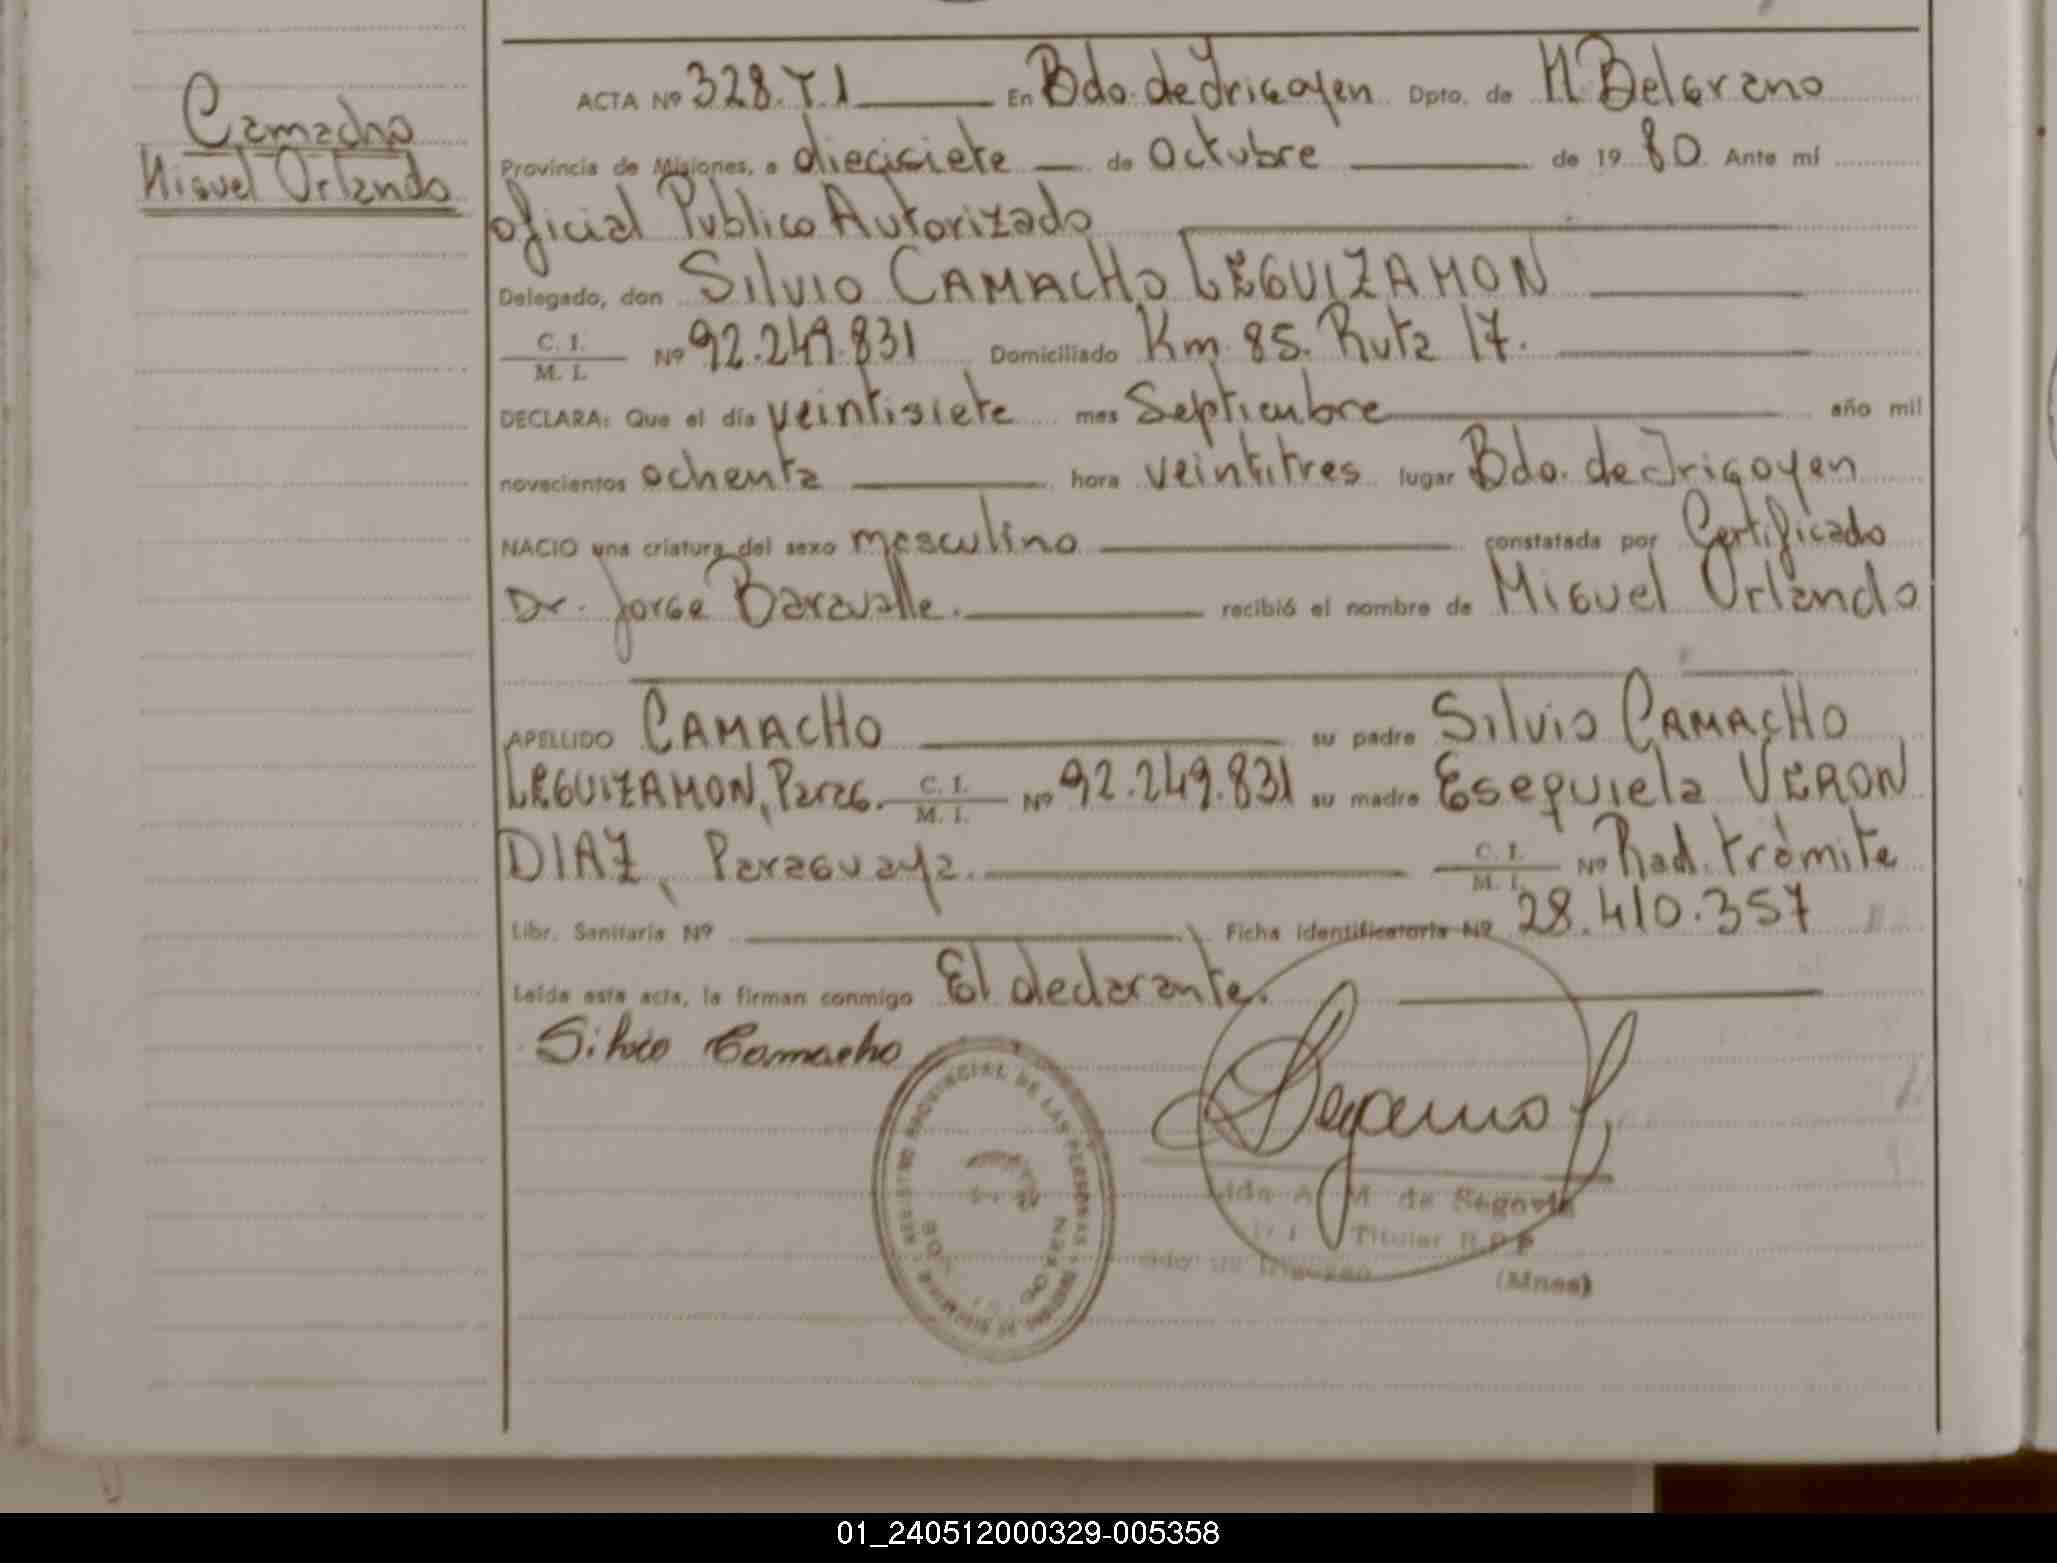 Camacho
Miguel Orlando
ACTA Nº 328.T.I En Bdo. de Irigoyen Dpto. de M Belgrano
Provincia de Misiones, a diecisiete de Octubre de 1980. Ante mí
oficial Publico Autorizado
Delegado, don Silvio CAMACHO LEGUIZAMON
C. I. / M. I. Nº 92.249.831 Domiciliado Km. 85. Ruta 17.
DECLARA: Que el día veintisiete mes Septiembre año mil
novecientos ochenta hora veintitres lugar Bdo. de Irigoyen
NACIO una criatura del sexo masculino constatada por Certificado
Dr. Jorge Baravalle. recibió el nombre de Miguel Orlando
APELLIDO CAMACHO su padre Silvio CAMACHO
LEGUIZAMON, Parag. C. I. / M. I. Nº 92.249.831 su madre Esequiela VERON
DIAZ, Paraguaya. C. I. / M. I. Nº Rad. trámite
Libr. Sanitaria Nº Ficha identificatoria Nº 28.410.357
Leída esta acta, la firman conmigo El declarante.
Silvio Camacho
REGISTRO PROVINCIAL DE LAS PERSONAS
A. M de Segovia
Titular R.P.P
(Mnes)
01_240512000329-005358